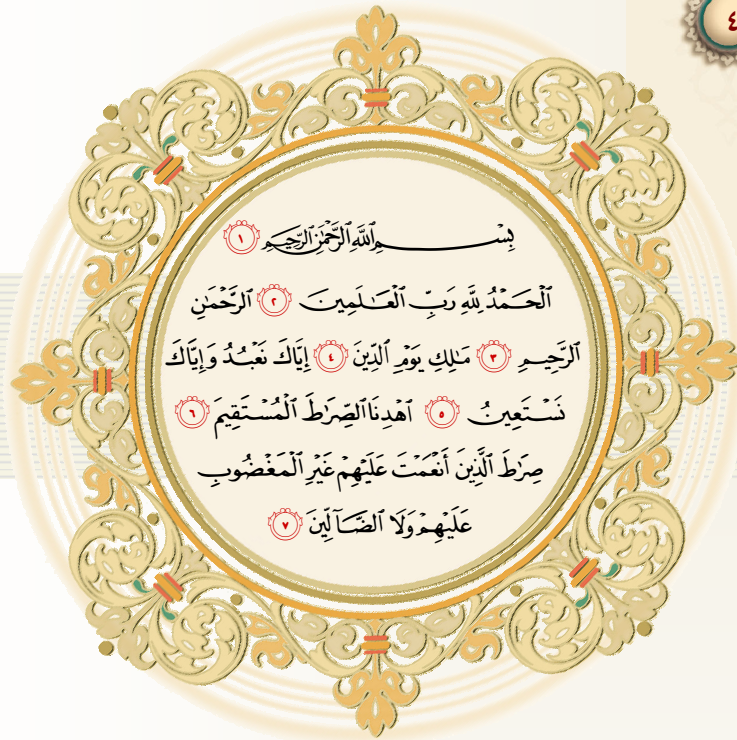 ٤
بِسۡمِ ٱللَّهِ ٱلرَّحۡمَٰنِ ٱلرَّحِيمِ ١
ٱلۡحَمۡدُ لِلَّهِ رَبِّ ٱلۡعَٰلَمِينَ ٢ ٱلرَّحۡمَٰنِ
ٱلرَّحِيمِ ٣ مَٰلِكِ يَوۡمِ ٱلدِّينِ ٤ إِيَّاكَ نَعۡبُدُ وَإِيَّاكَ
نَسۡتَعِينُ ٥ ٱهۡدِنَا ٱلصِّرَٰطَ ٱلۡمُسۡتَقِيمَ ٦
صِرَٰطَ ٱلَّذِينَ أَنۡعَمۡتَ عَلَيۡهِمۡ غَيۡرِ ٱلۡمَغۡضُوبِ
عَلَيۡهِمۡ وَلَا ٱلضَّآلِّينَ ٧